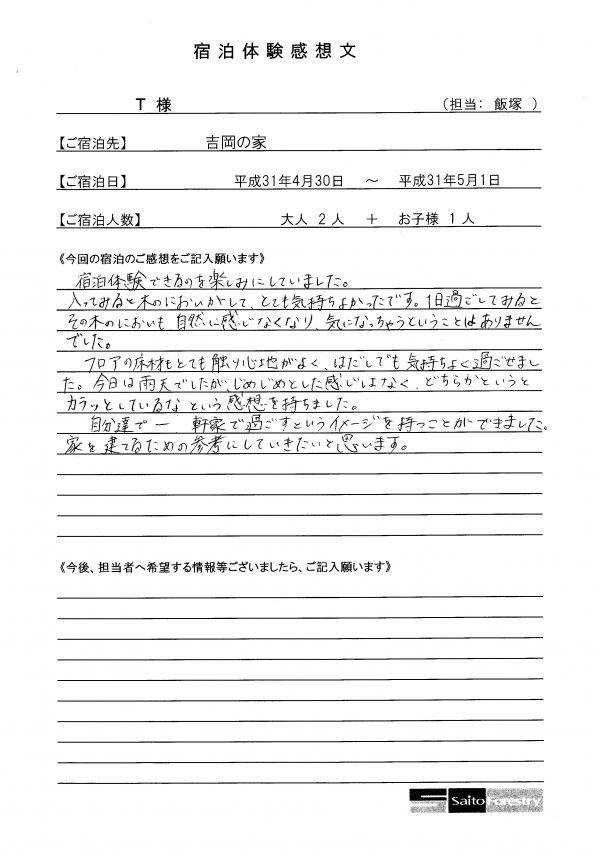 宿泊体験感想文
T 様 （担当： 飯塚 ）
【ご宿泊先】 吉岡の家
【ご宿泊日】 平成31年4月30日 ～ 平成31年5月1日
【ご宿泊人数】 大人 2人 ＋ お子様 1人
《今回の宿泊のご感想をご記入願います》
宿泊体験できるのを楽しみにしていました。
入ってみると木のにおいがして、とても気持ちよかったです。1日過ごしてみると
その木のにおいも自然に感じなくなり、気になっちゃうということはありません
でした。
フロアの床材もとても触り心地がよく、はだしでも気持ちよく過ごせまし
た。今日は雨天でしたが、じめじめとした感じはなく、どちらかというと
カラッとしているなという感想を持ちました。
自分達で一軒家で過ごすというイメージを持つことができました。
家を建てるための参考にしていきたいと思います。
《今後、担当者へ希望する情報等ございましたら、ご記入願います》
Saito Forestry